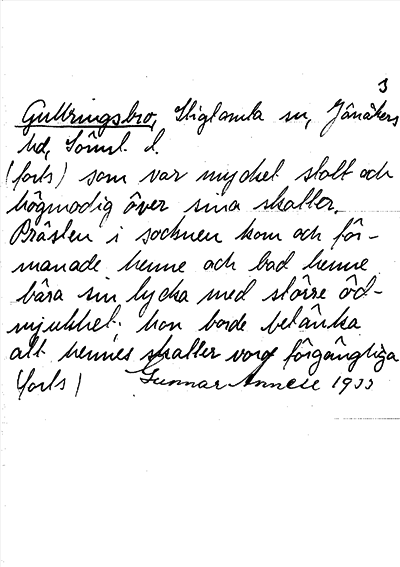 3
Gullringsbro, Stigtamta sn, Jönåkers
hd, Sörml. l.
(forts) som var mycket stolt och
högmodig över sina skatter.
Prästen i socknen kom och för-
manade henne och bad henne
bära sin lycka med större öd-
mjukhet: hon borde betänka
att hennes skatter voro förgängliga
(forts) Gunnar Annell 1933